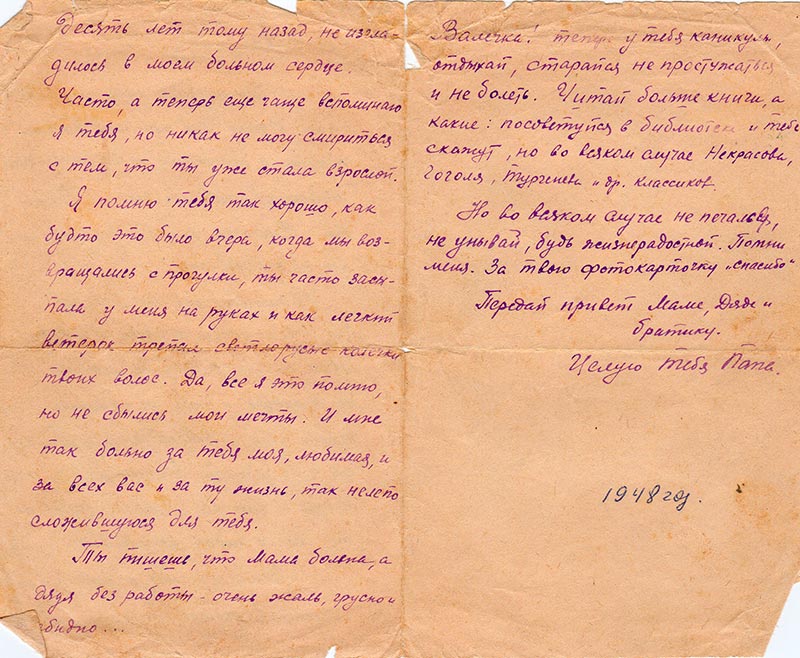 Десять лет тому назад, не изгла-
дилось в моем больном сердце.
Часто, а теперь еще чаще вспоминаю
я тебя, но никак не могу смириться
с тем, что ты уже стала взрослой.
Я помню тебя так хорошо, как
будто это было вчера, когда мы воз-
вращались с прогулки, ты часто засы-
пала у меня на руках и как легкий
ветерок трепал светлорусые колечки
твоих волос. Да, все я это помню,
но не сбылись мои мечты. И мне
так больно за тебя моя, любимая, и
за всех вас и за ту жизнь, так нелепо
сложившуюся для тебя.
Ты пишешь, что Мама больна, а
дядя без работы - очень жаль, грустно и
обидно...
Валечка! теперь у тебя каникулы,
отдыхай, старайся не простужаться
и не болеть. Читай больше книги, а
какие: посоветуйся в библиотеке и тебе
скажут, но во всяком случае Некрасова,
Гоголя, Тургенева и др. классиков.
Но во всяком случае не печалься,
не унывай, будь жизнерадостной. Помни
меня. За твою фотокарточку "спасибо"
Передай привет Маме, Дяде и
братику.
Целую тебя Папа.
1948 год.